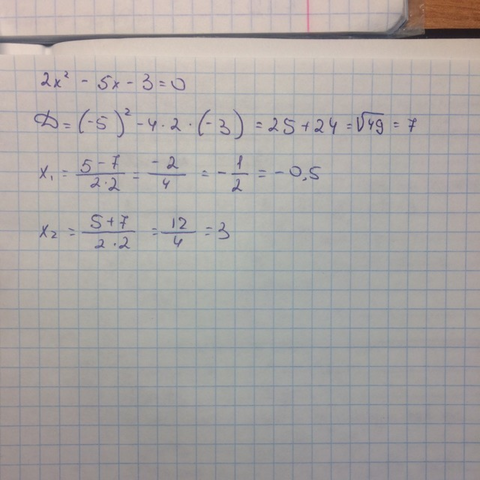 2x² - 5x - 3 = 0
D = (-5)² - 4 · 2 · (-3) = 25 + 24 = √49 = 7
x₁ = (5 - 7)/(2 · 2) = (-2)/4 = -1/2 = -0,5
x₂ = (5 + 7)/(2 · 2) = 12/4 = 3